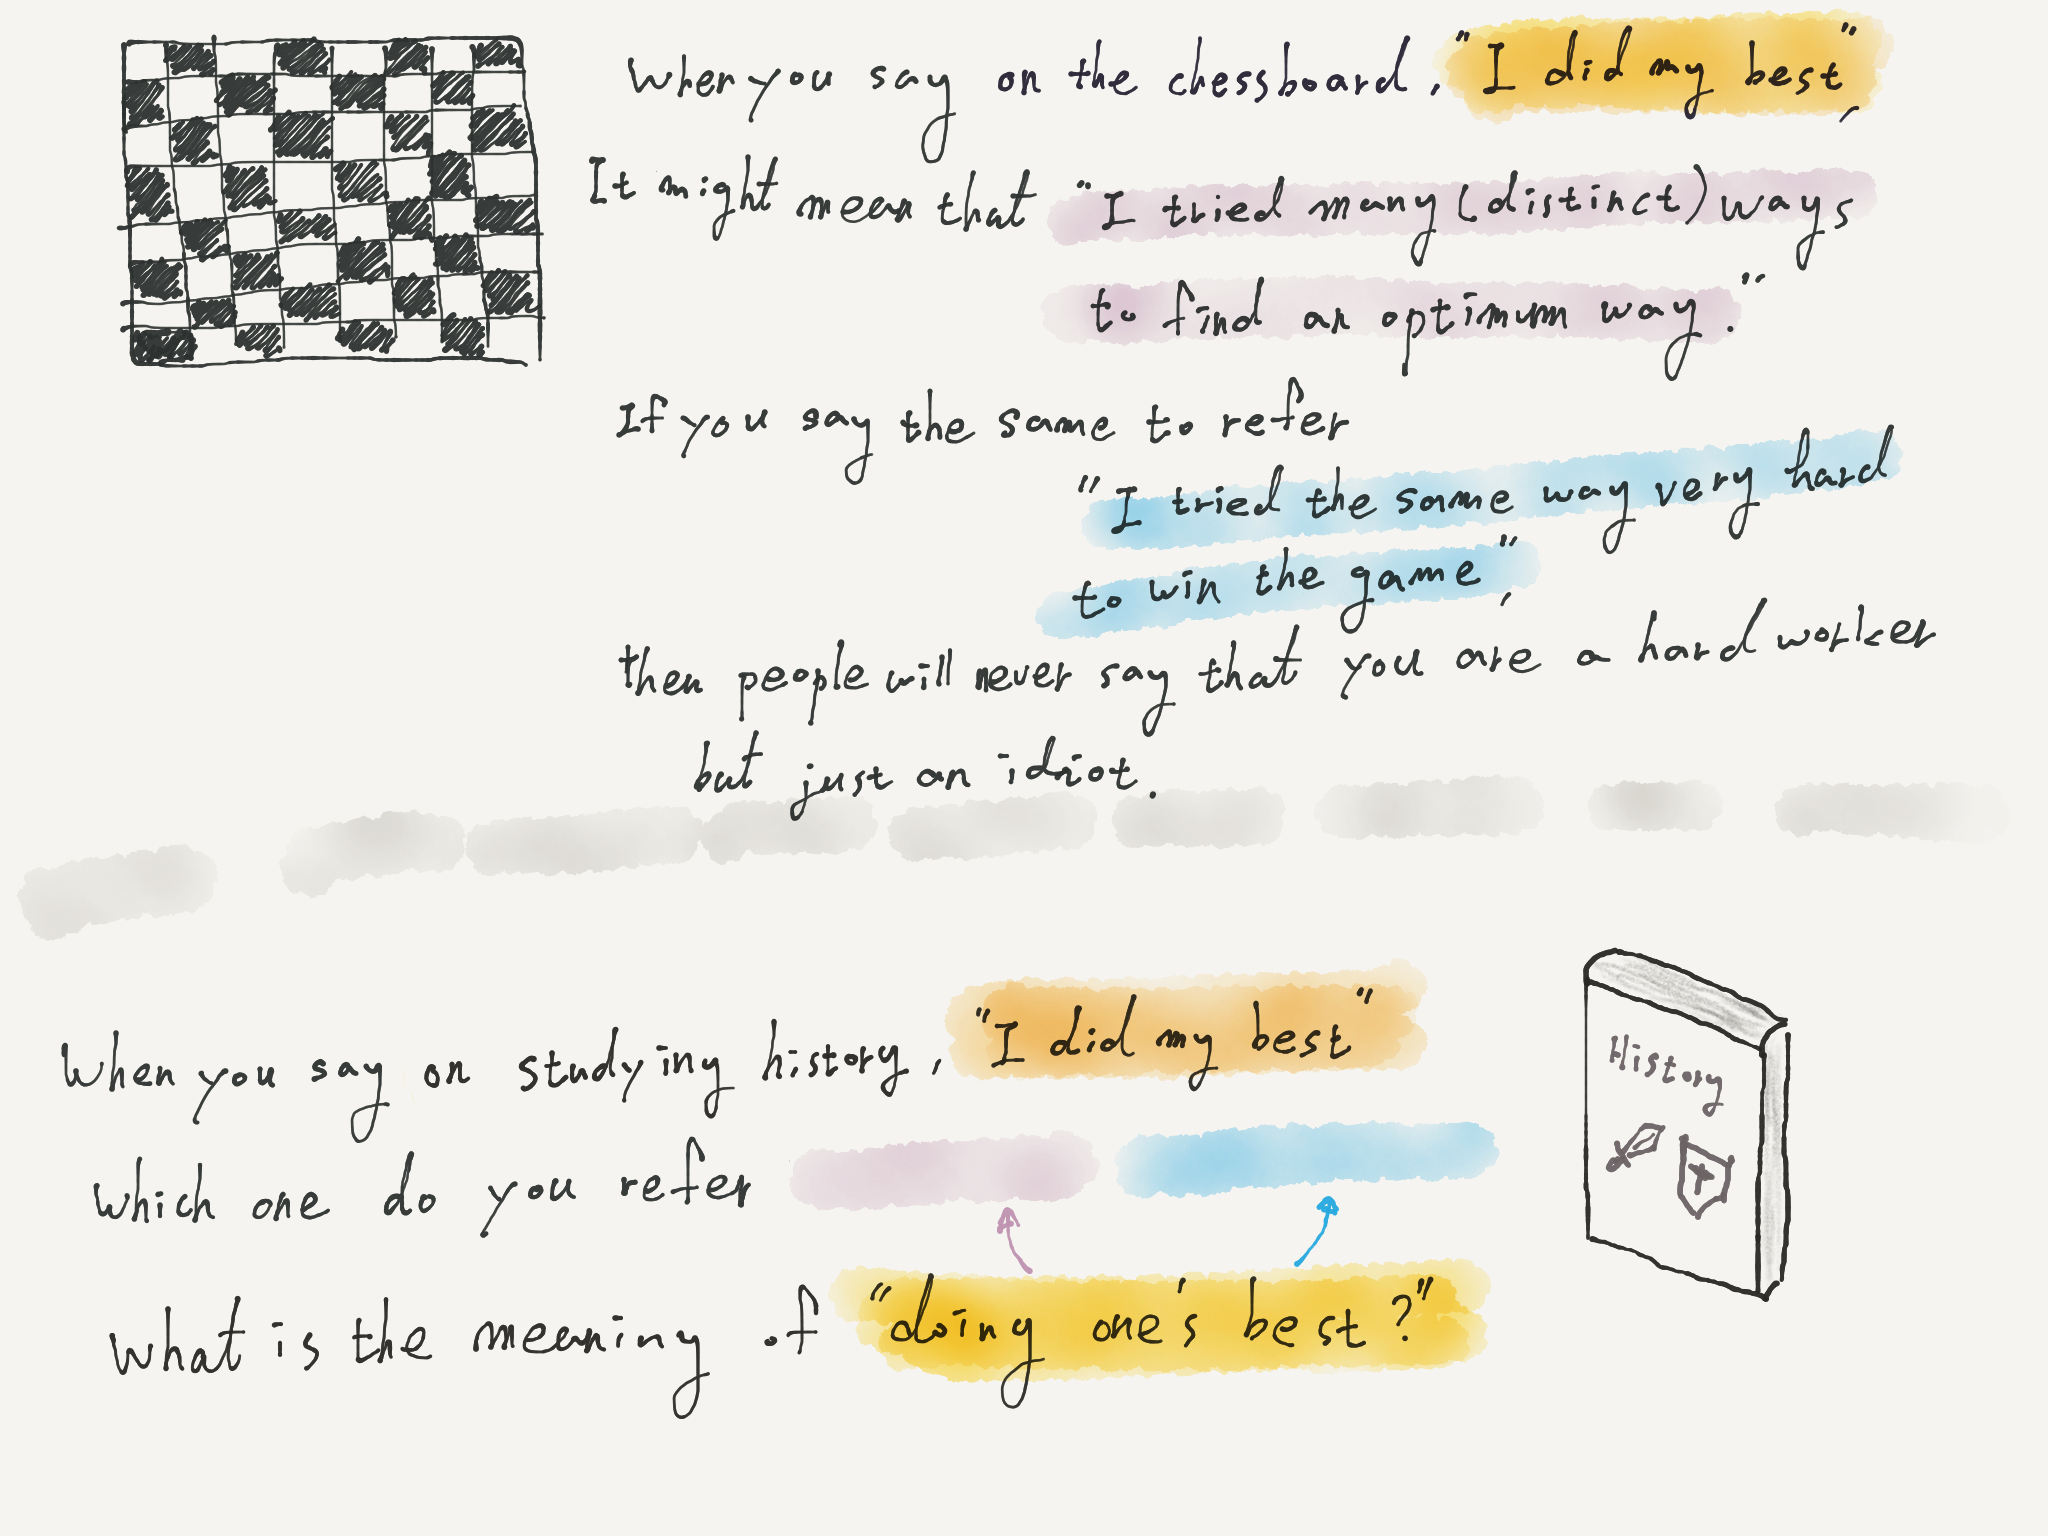 When you say on the chessboard, "I did my best",
It might mean that "I tried many (distinct) ways
to find an optimum way."
If you say the same to refer
"I tried the same way very hard
to win the game",
then people will never say that you are a hard worker
but just an idiot.
When you say on studying history, "I did my best"
which one do you refer
What is the meaning of "doing one's best?"
History